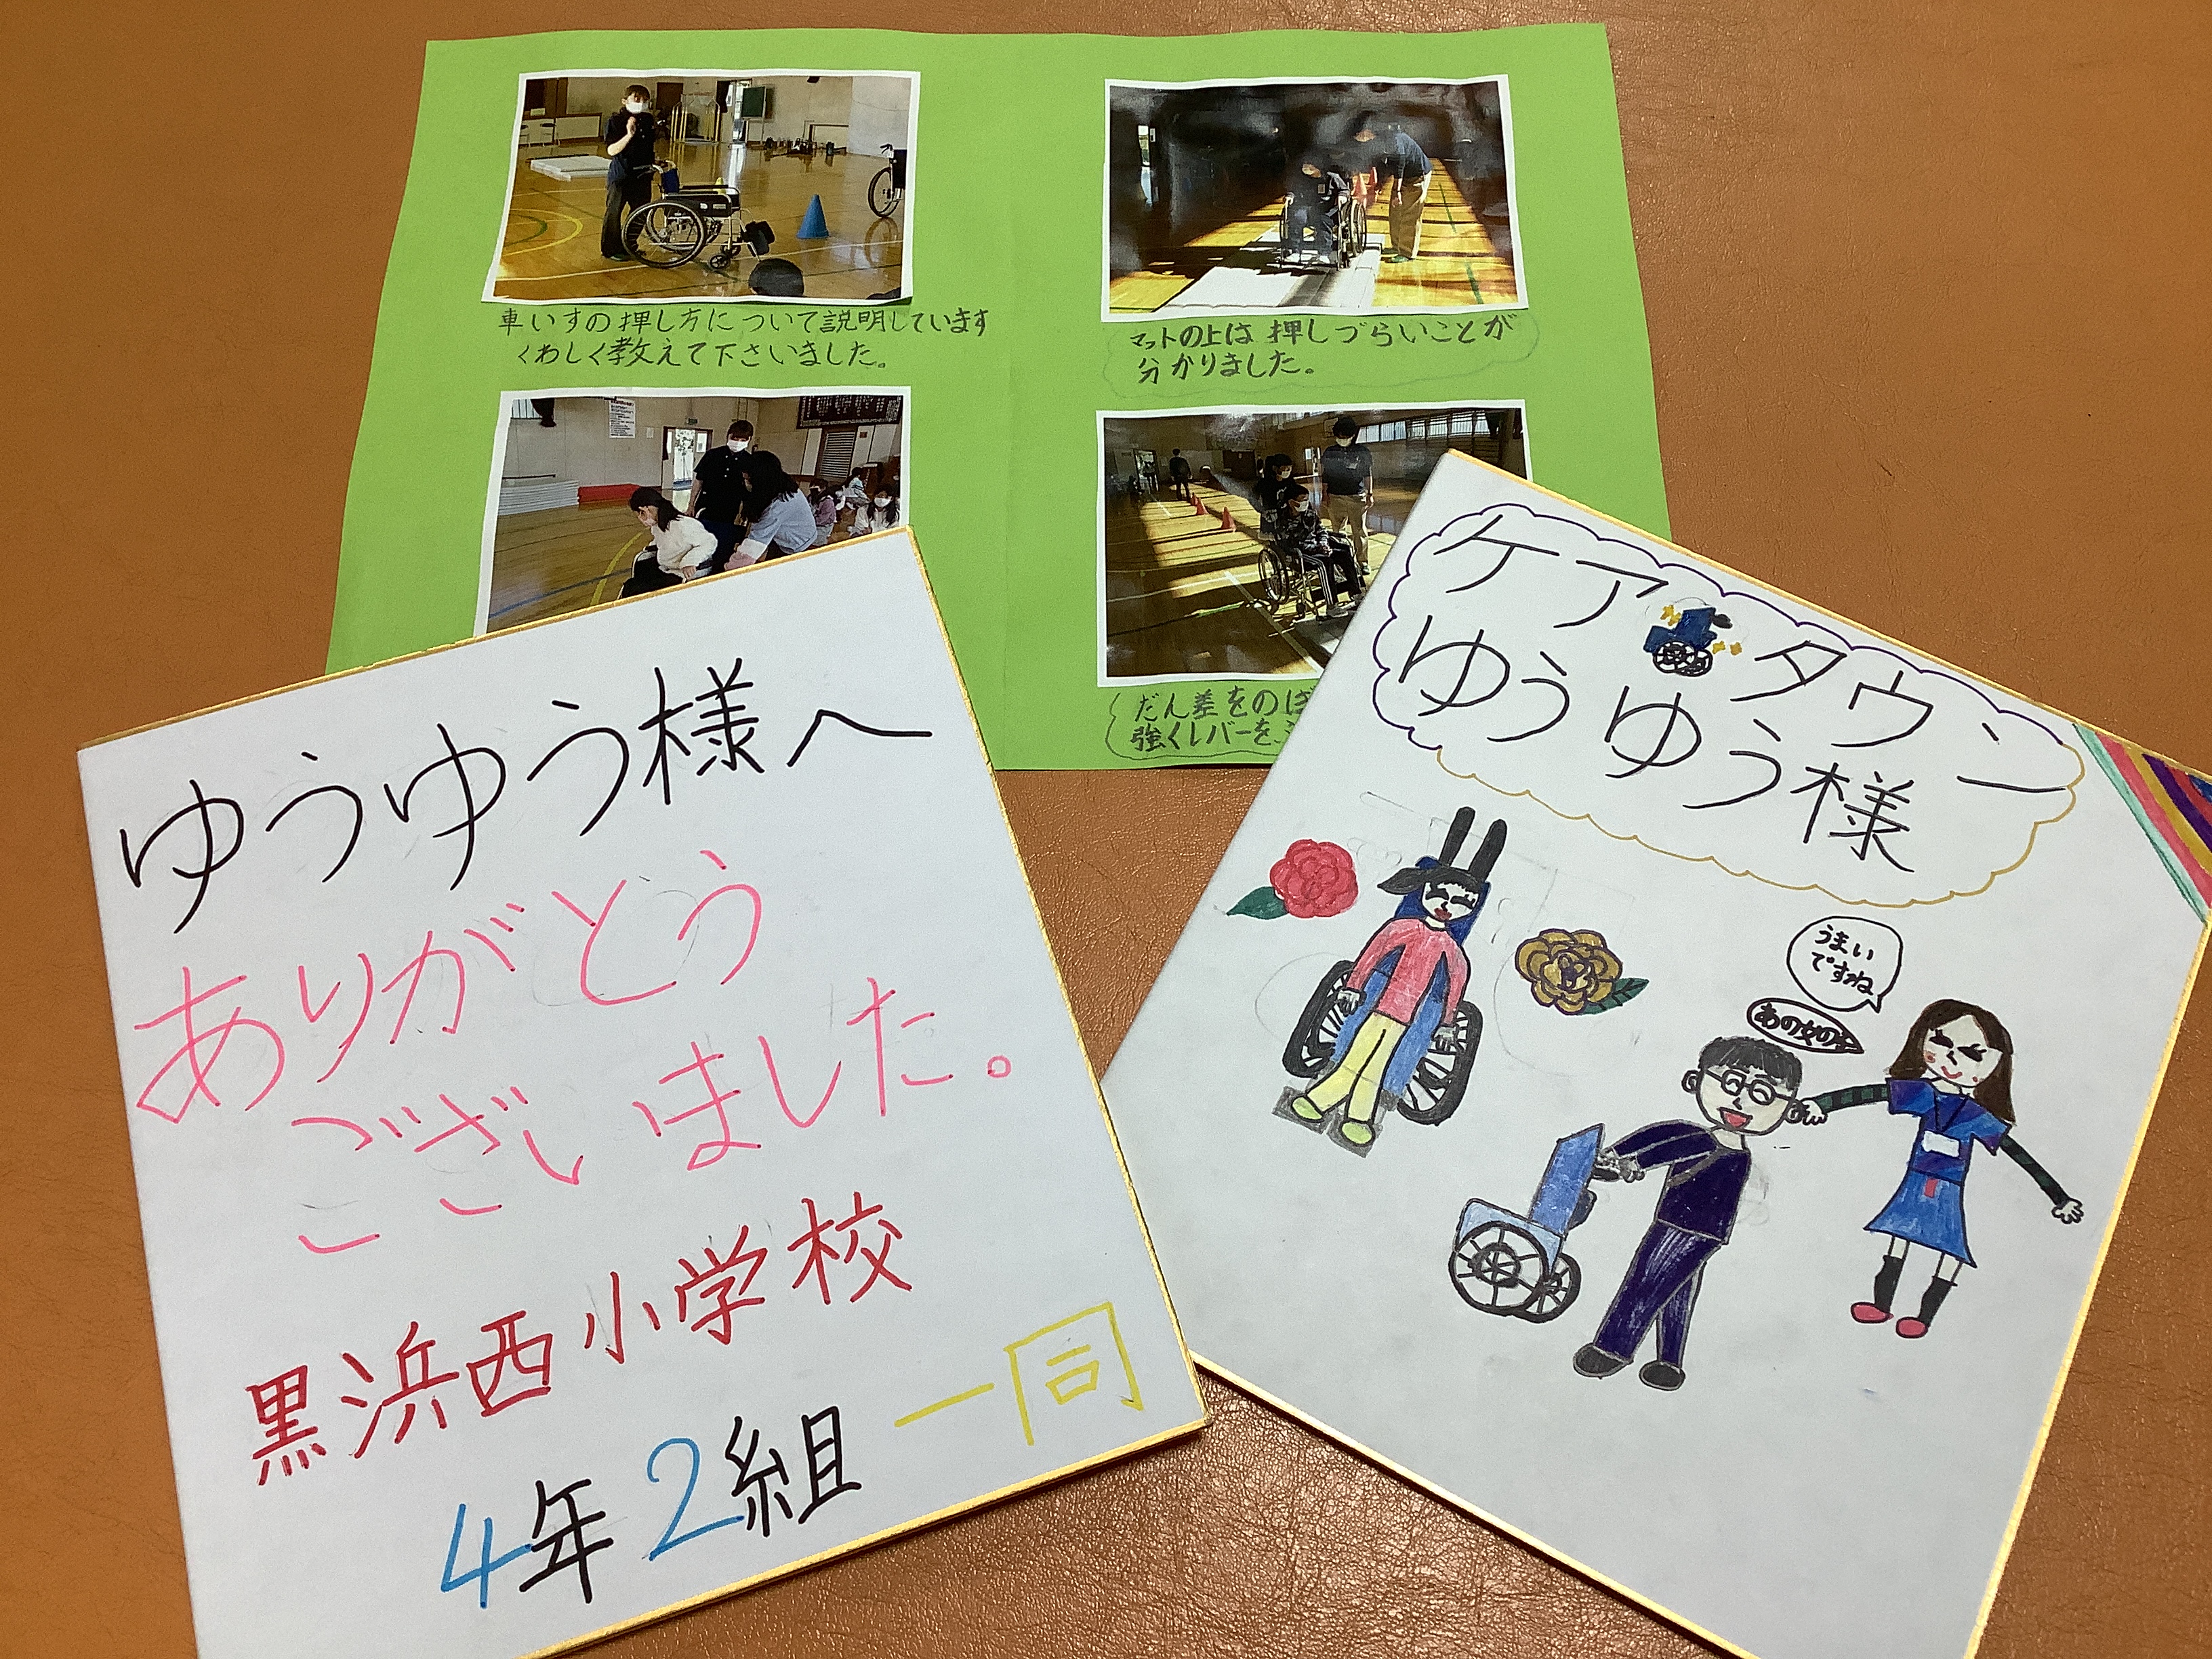 車いすの押し方について説明しています
くわしく教えて下さいました。
マットの上は押しづらいことが
分かりました。
だん差をのぼ
強くレバーを
ゆうゆう様へ
ありがとう
ございました。
黒浜西小学校
4年2組一同
ケアタウン
ゆうゆう様
うまい
ですね
あの女の